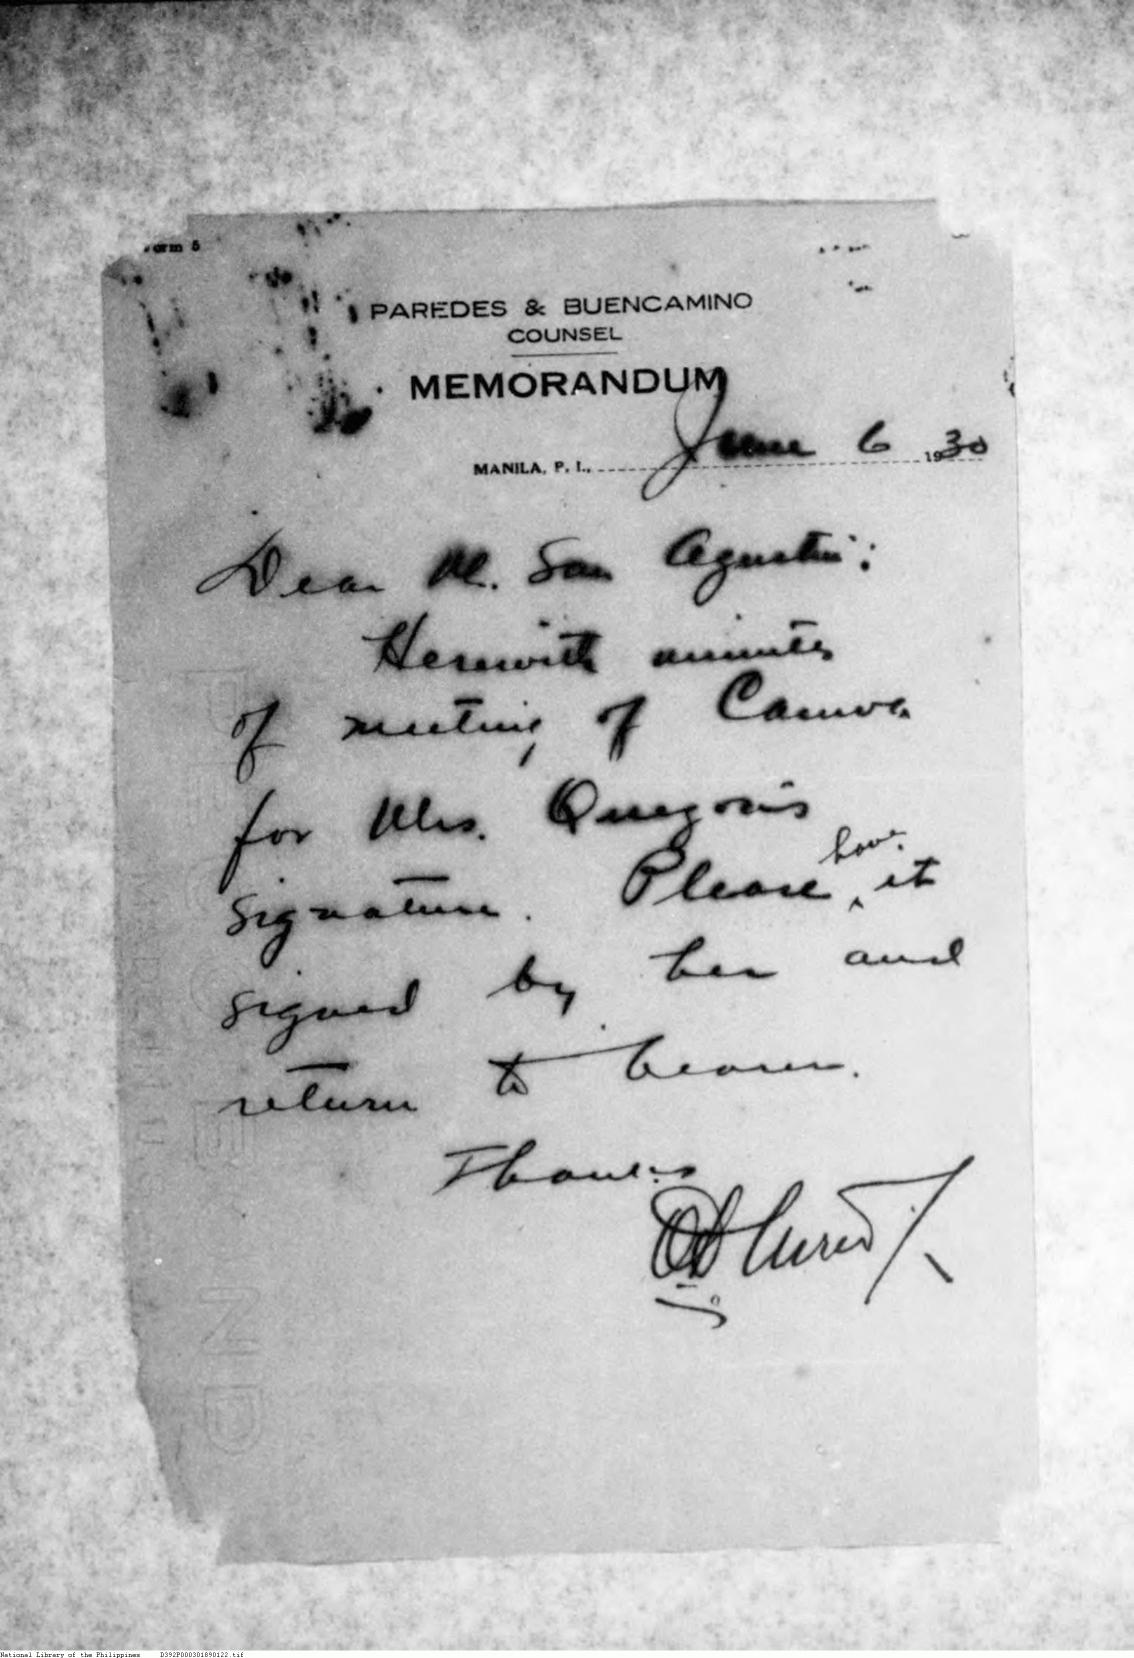 Form 5
PAREDES & BUENCAMINO
COUNSEL
MEMORANDUM
MANILA, P. I., June 6 1930
Dear M. San Agustin:
Herewith minutes
of meeting of
for Mrs. Quezon's
signature. Please have it
signed by her and
return to bearer.
Thanks
National Library of the Philippines D392P000301890122.tif